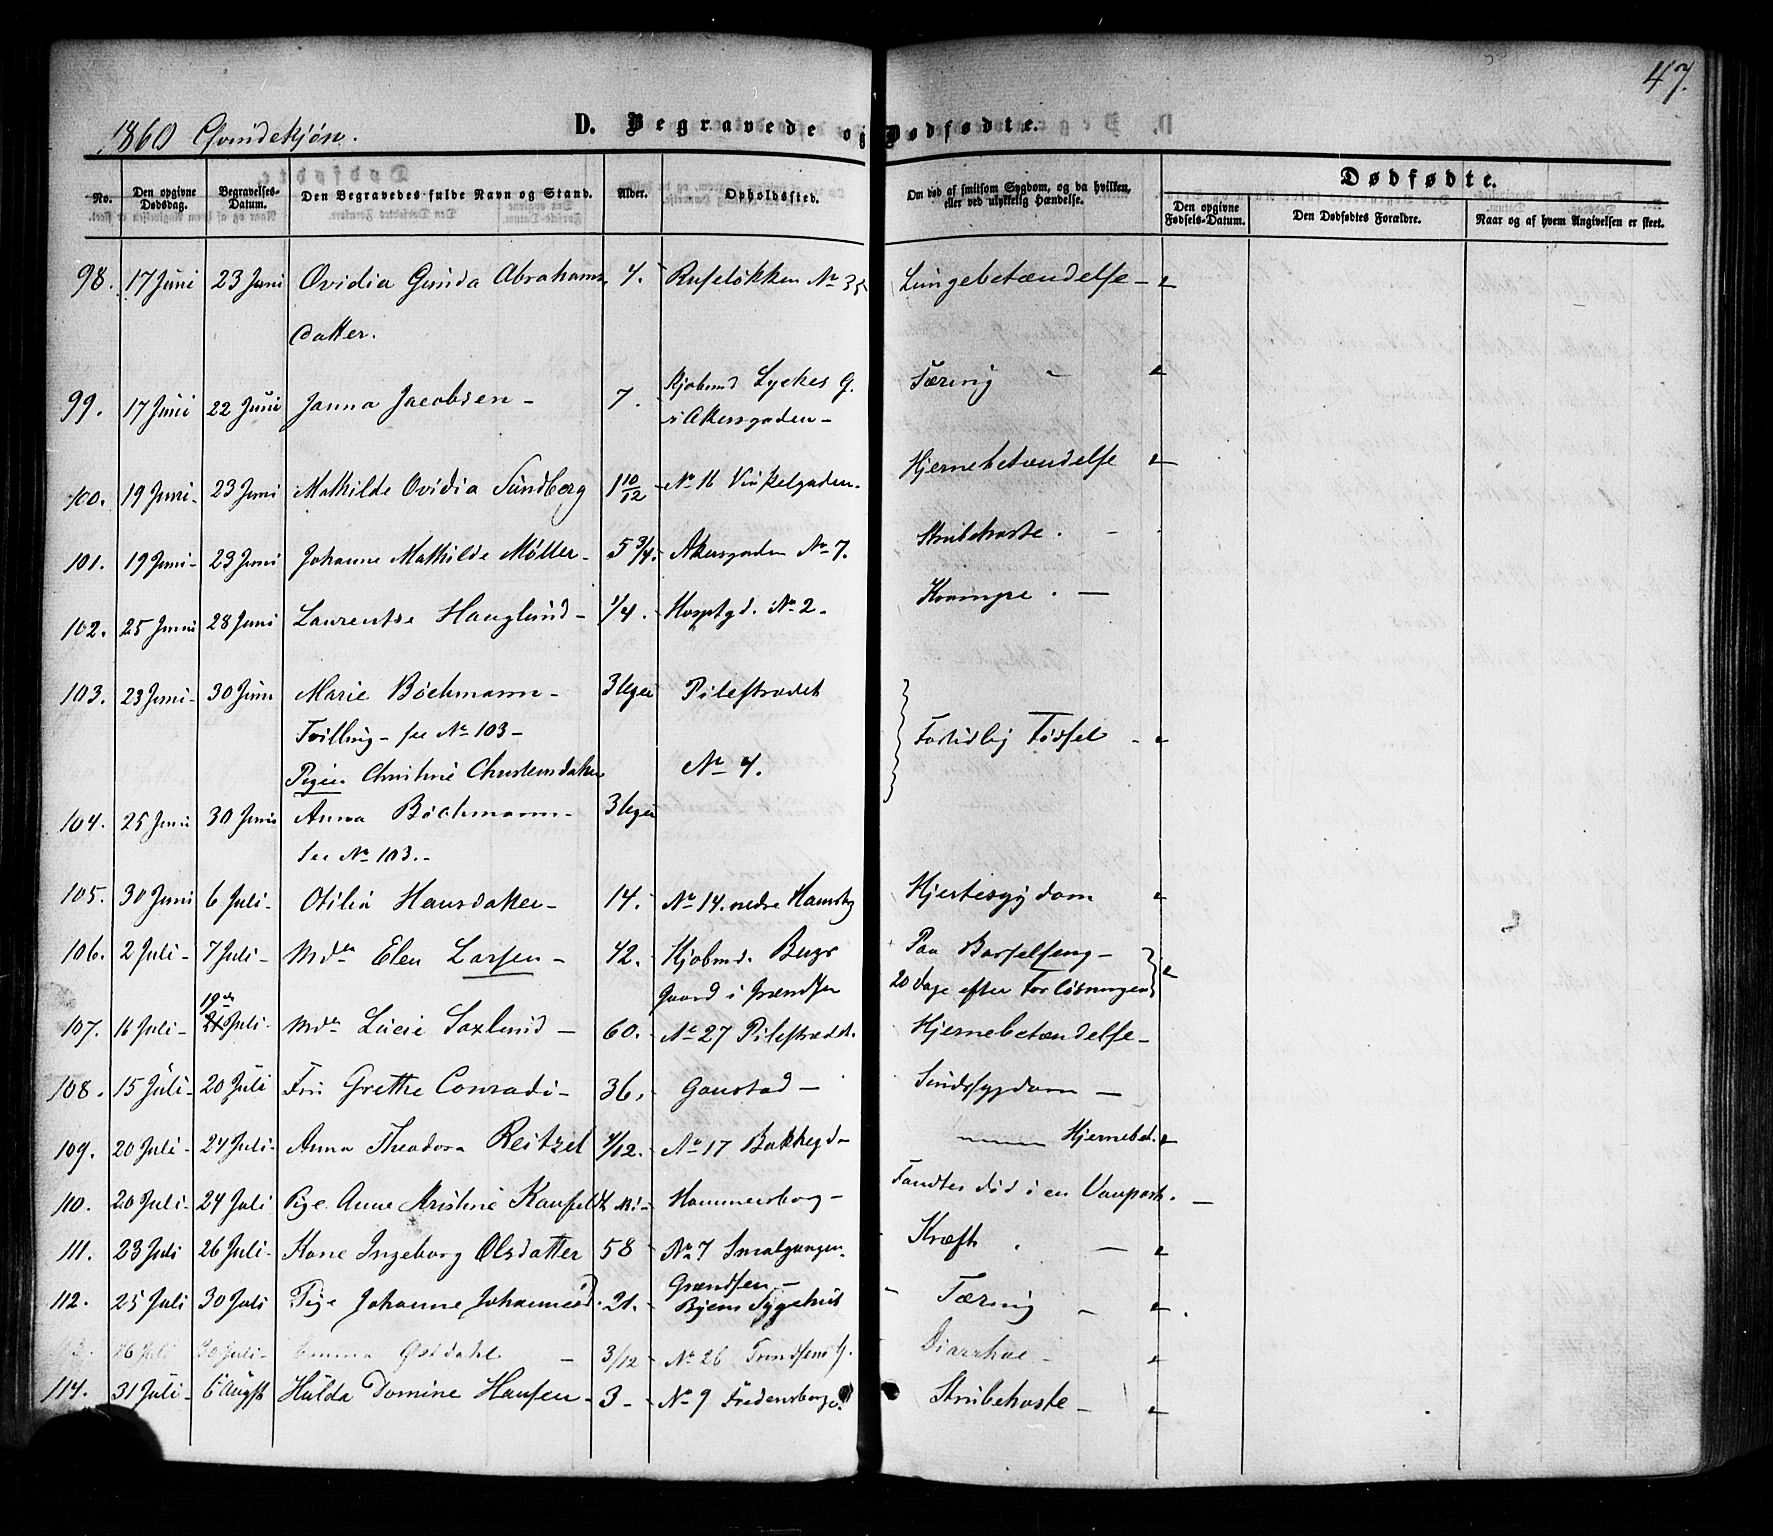 47.
1860 Qvindekjøn.
D. Begravede og Dødfødte.
No. Den opgivne Dødsdag. Begravelses-Datum. Den Begravedes fulde Navn og Stand. Alder. Opholdssted. Om død af smitsom Sygdom, og da hvilken, eller ved ulykkelig Hændelse. Dødfødte.
Den opgivne Fødsels-Datum. Den Dødfødtes Forældre. Naar og af hvem Angivelsen er skeet.
98. 17 Juni 23 Juni Ovidia Gunda Abrahams 4. Ruseløkken No 35 Lungebetændelse -
datter.
99. 17 Juni 22 Juni Janna Jacobsen - 7. Kjøbmd Lyckes G. Tæring
i Akersgaden -
100. 19 Juni - 23 Juni Mathilde Ovidia Sundberg 1 10/12 No 16 Vinkelgaden. Hjernebetændelse
101. 19 Juni - 23 Juni Johanne Mathilde Møller - 5 3/4. Akersgaden No 7. Strubehoste. -
102. 25 Juni 28 Juni Laurentse Hauglund - 1/4. Hosptgd. No 2. Krampe. -
103. 23 Juni - 30 Juni Marie Bøchmann - 3 Uger Pilestrædet
Tvilling - see No 103 - Fortidlig Fødsel -
Pigen Christine Christensdatter No 4.
104. 25 Juni 30 Juni Anna Bøchmann - 3 Uger
see No 103. -
105. 30 Juni 6 Juli - Otilia Hansdatter - 14. No 14. nedre Hamsbg Hjertesygdom
106. 2 Juli - 7 Juli - Mdm Elen Larsen - 42. Kjøbmd. Paa Barselseng -
Gaard i Grændsen 20 Dage efter Forløsningen
107. 16 Juli - 19de 21 Juli - Mdm Lucie Saxlund - 60. No 27 Pilestrædet. Hjernebetændelse -
108. 15 Juli - 20 Juli Fru Grethe Conradi - 36. Gaustad - Sindssygdom -
109. 20 Juli - 24 Juli - Anna Theodora Reitzel 4/12. No 17 Bakkegd - Hjernebet.
110. 20 Juli - 24 Juli Pige Anne Kristine Hammersborg - Fandtes død i en
111. 23 Juli 26 Juli - Kone Ingeborg Olsdatter 58 No 7 Smalgangen. Kræft. -
112. 25 Juli 30 Juli Pige Johanne Johannesd. 21. Grændsen - Byens Sygehus Tæring -
26 Juli 30 Juli - Emma Østdahl - 3/12 - No 26 Diarrhae -
114. 31 Juli - 6 Augst Hulda Domine Hansen - 3 - No 9 Fredensborg Strubehoste -